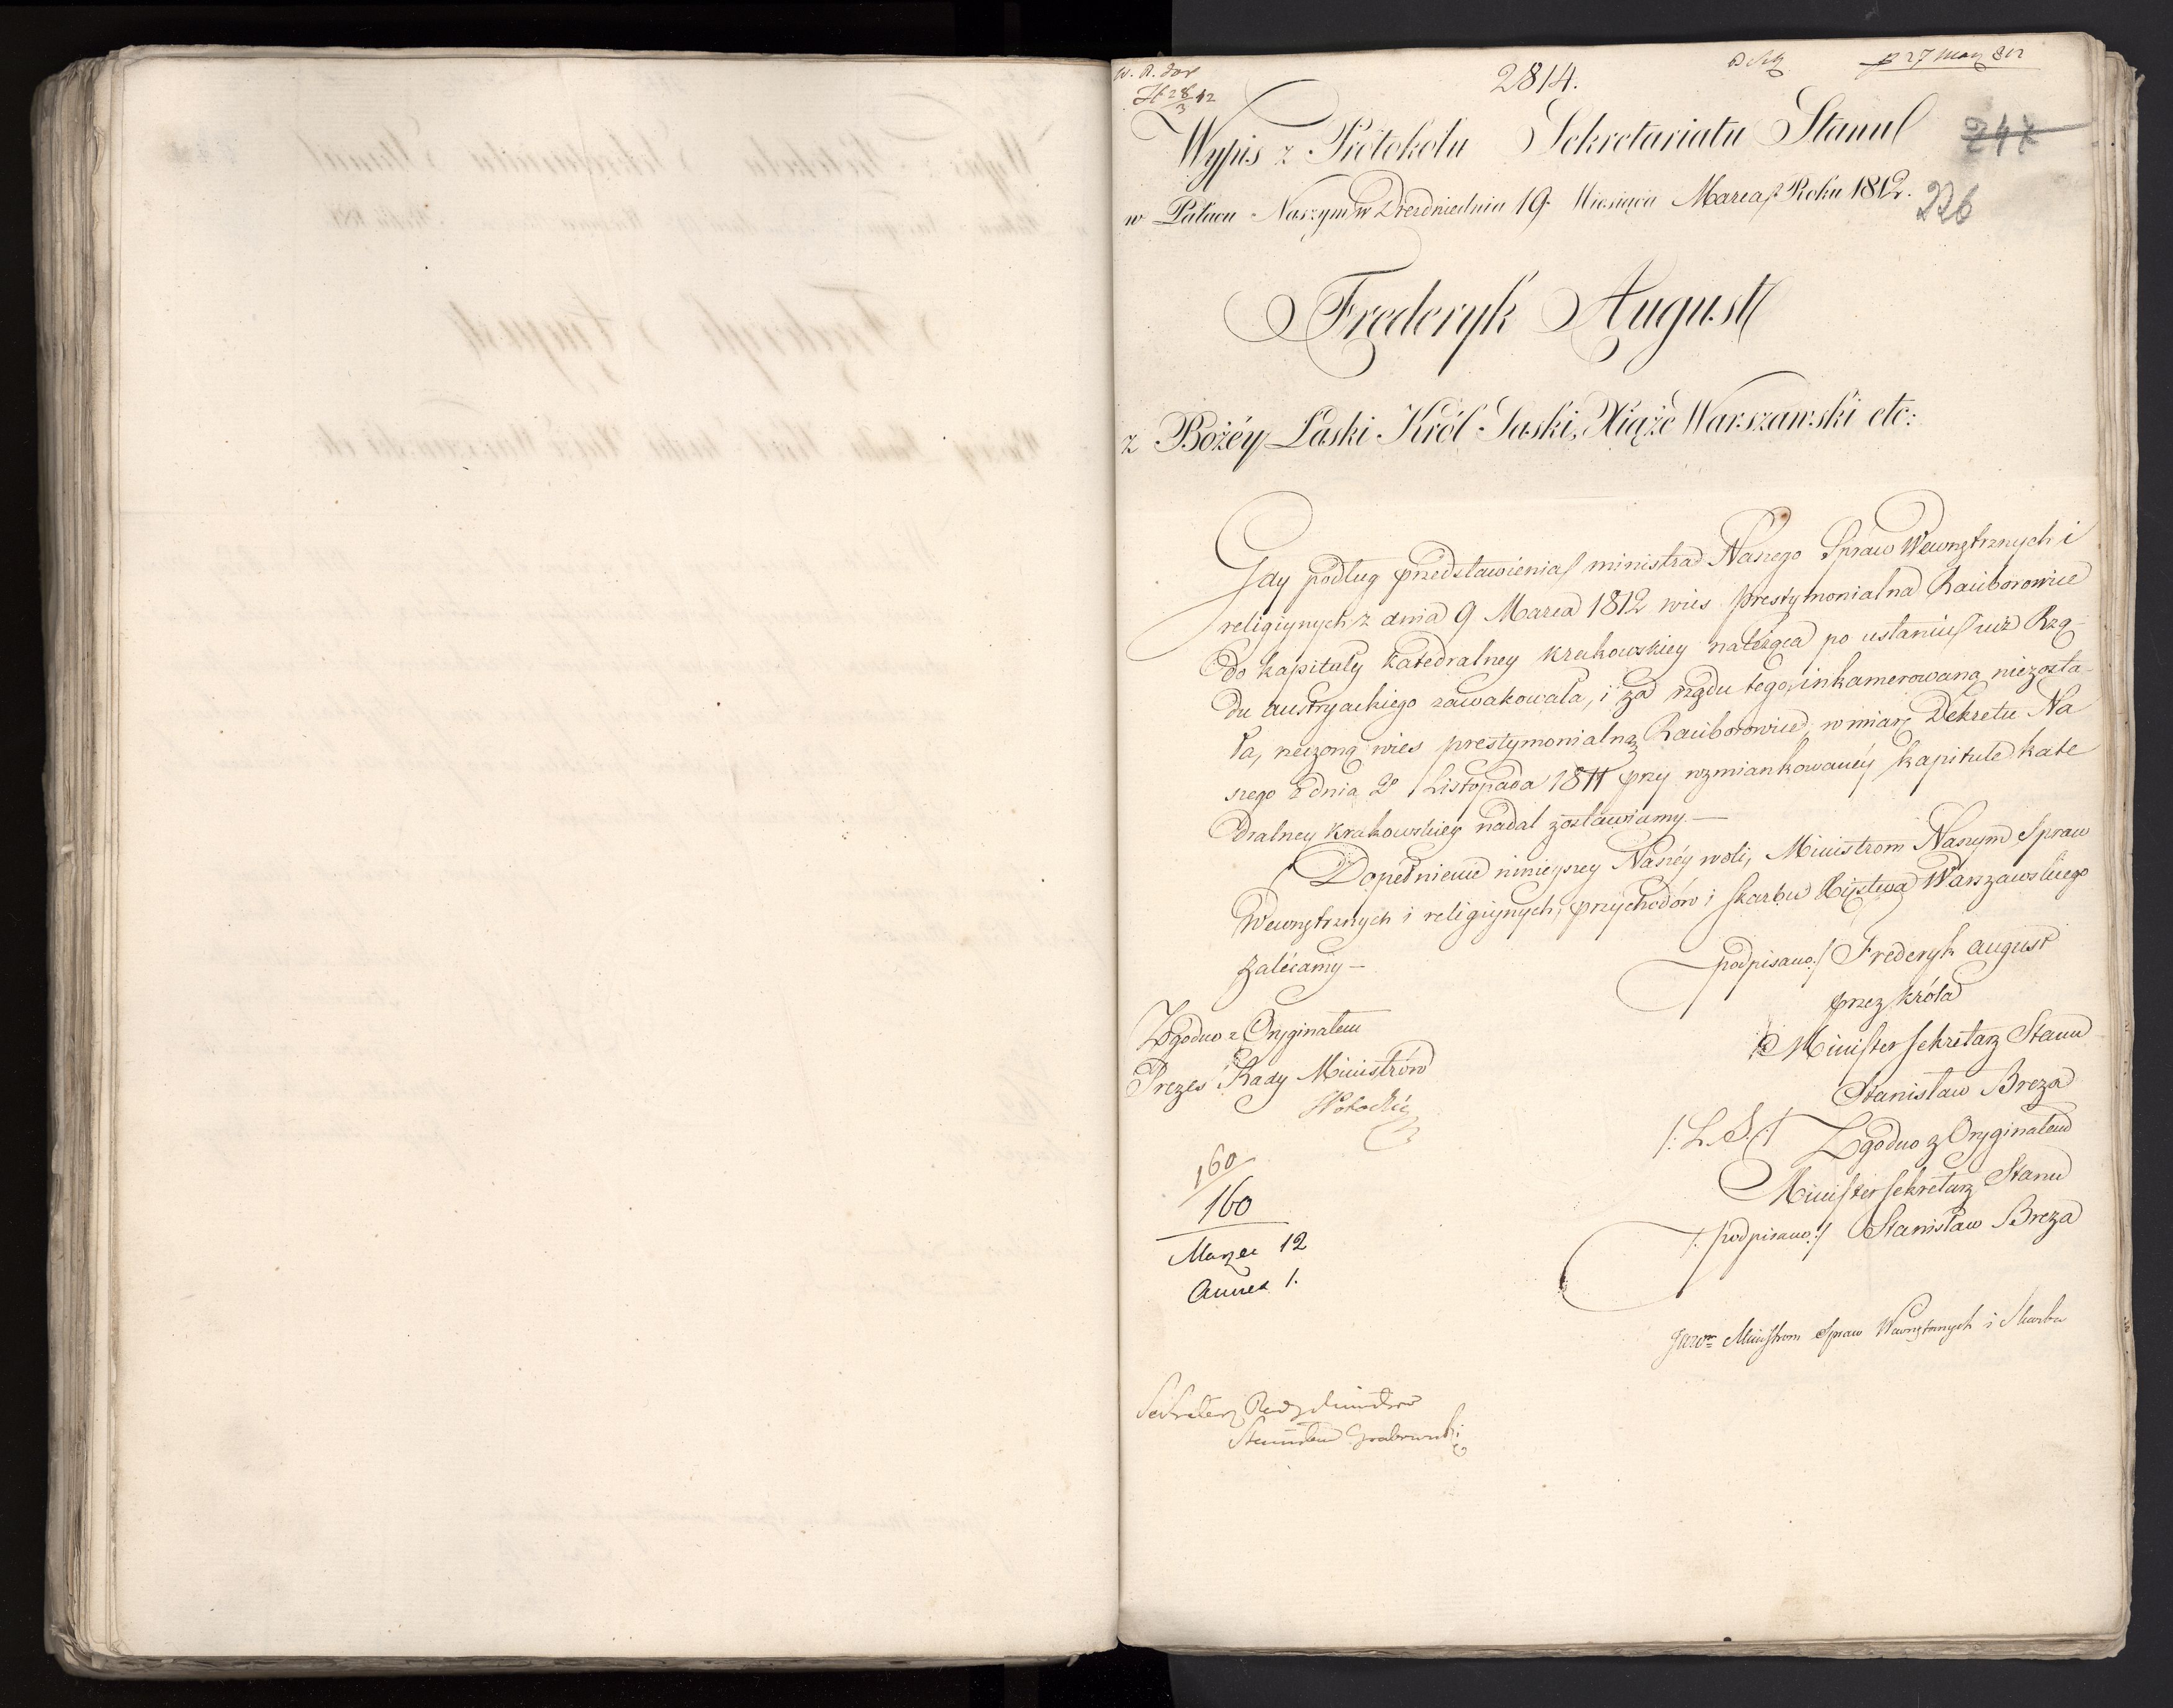 2814.
p 27 Marz 812
28/3 12
247
Wypis z Protokołu Sekretariatu Stanu
w Pałacu Naszym w Dreźnie dnia 19. Miesiąca Marca Roku 1812.
226
Frederyk August
z Bożéy Łaski Król Saski, Xiąże Warszawski etc:
Gdy podług przedstawienia ministra Naszego Spraw Wewnętrznych i
religiynych z dnia 9 Marca 1812 wieś prestymonialna Raciborowice
do kapituły katedralney krakowskiey należąca po ustaniu już Rzą-
du austryackiego zawakowała, i za rządu tego inkamerowaną niezosta-
ła, rzeczoną wieś prestymonialną Raciborowice, w miarę Dekretu Na
szego z dnia 2o Listopada 1811 przy wzmiankowanéy kapitule kate
dralney krakowskiey nadal zostawiamy.—
Dopełnienie ninieyszey Naszéy woli, Ministrom Naszym Spraw
Wewnętrznych i religiynych, przychodów i skarbu Xięstwa Warszawskiego
zalécamy —
podpisano:/ Frederyk august
przez króla
Minister Sekretarz Stanu
Stanisław Breza
/: L. S. :/ Zgodno z Oryginałem
Minister Sekretarz Stanu
/: podpisano :/ Stanisław Breza
Zgodno z Oryginałem
Prezes Rady Ministrów
160
160
Marzec 12
Annex 1.
Ministrom Spraw Wewnętrznych i Skarbu
Sekretarz Rady Ministrów
Stanisław Grabowski